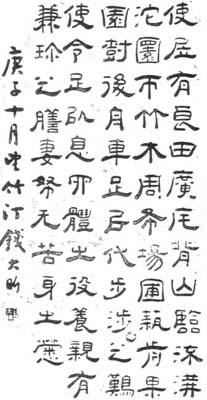 使居有良田廣宅背山臨流溝
沱圜帀竹木周布場圃築前果
園樹後舟車足以代步涉之難
使令足以息四體之役養親有
兼珍之膳妻帑无苦身之勞
庚子十月竹汀錢大昕